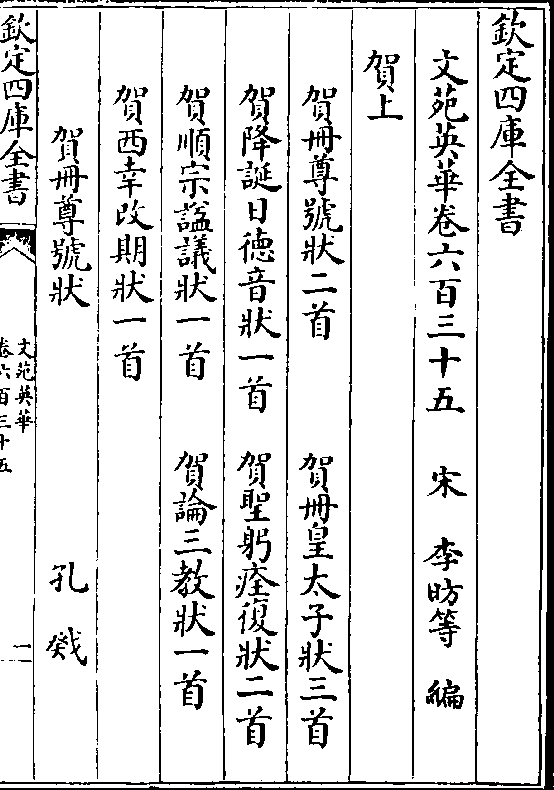 欽定四庫全書
文苑英華卷六百三十五 宋 李昉等 編
賀上
賀冊尊號狀二首 賀冊皇太子狀三首
賀降誕日徳音狀一首 賀聖躬痊復狀二首
賀順宗諡議狀一首 賀論三教狀一首
賀西幸改期狀一首
賀冊尊號狀 孔戣
欽定四庫全書
文苑英華
卷六百三十五